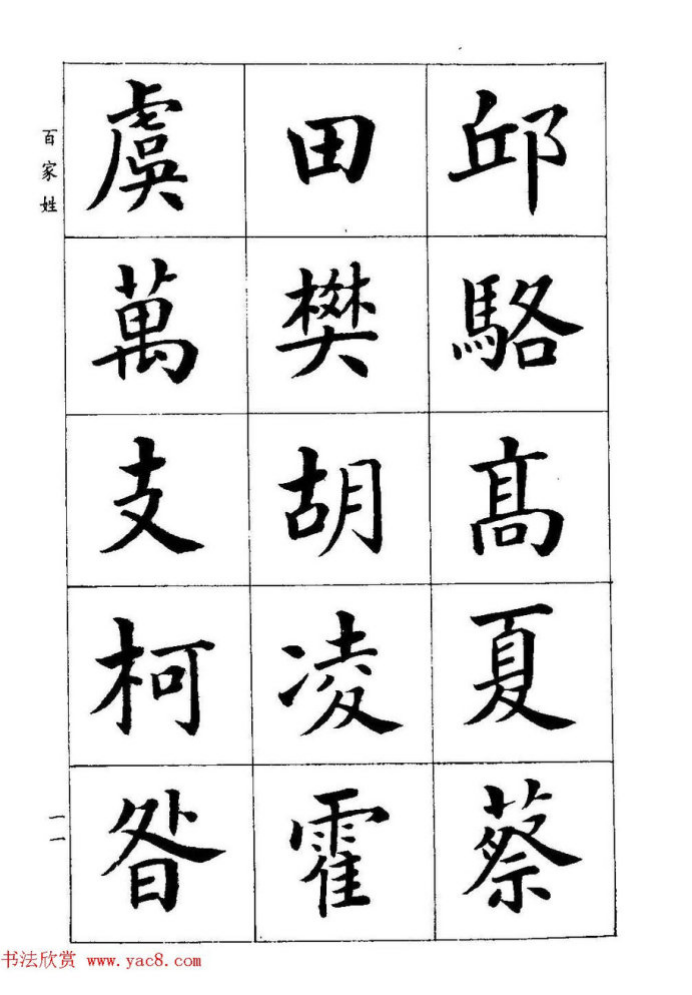 邱駱髙夏蔡
田樊胡凌霍
虞萬支柯昝
百家姓
一一
书法欣赏 www.yac8.com